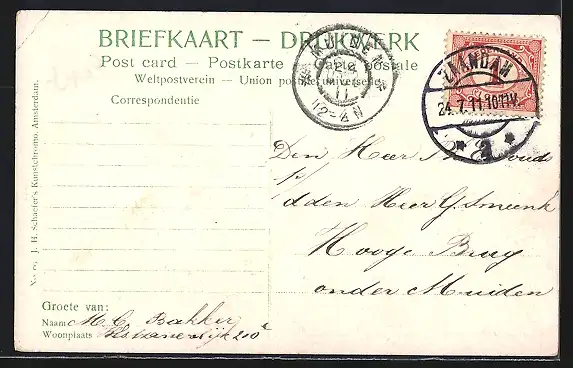 BRIEFKAART — DRUKWERK
Post card — Postkarte — Carte postale
Weltpostverein — Union postale universelle
Correspondentie
MUIDEN
11
12-4 N
ZAANDAM
24.7.11.10-11V.
2
Den Heer
p/
dden Heer G. Smeenk
Hooge Brug
onder Muiden
J. H. Schaefer's Kunstchromo. Amsterdam.
Groete van:
Naam: M. C. Bakker
Woonplaats